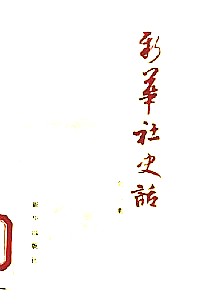 新華社史話
新华出版社